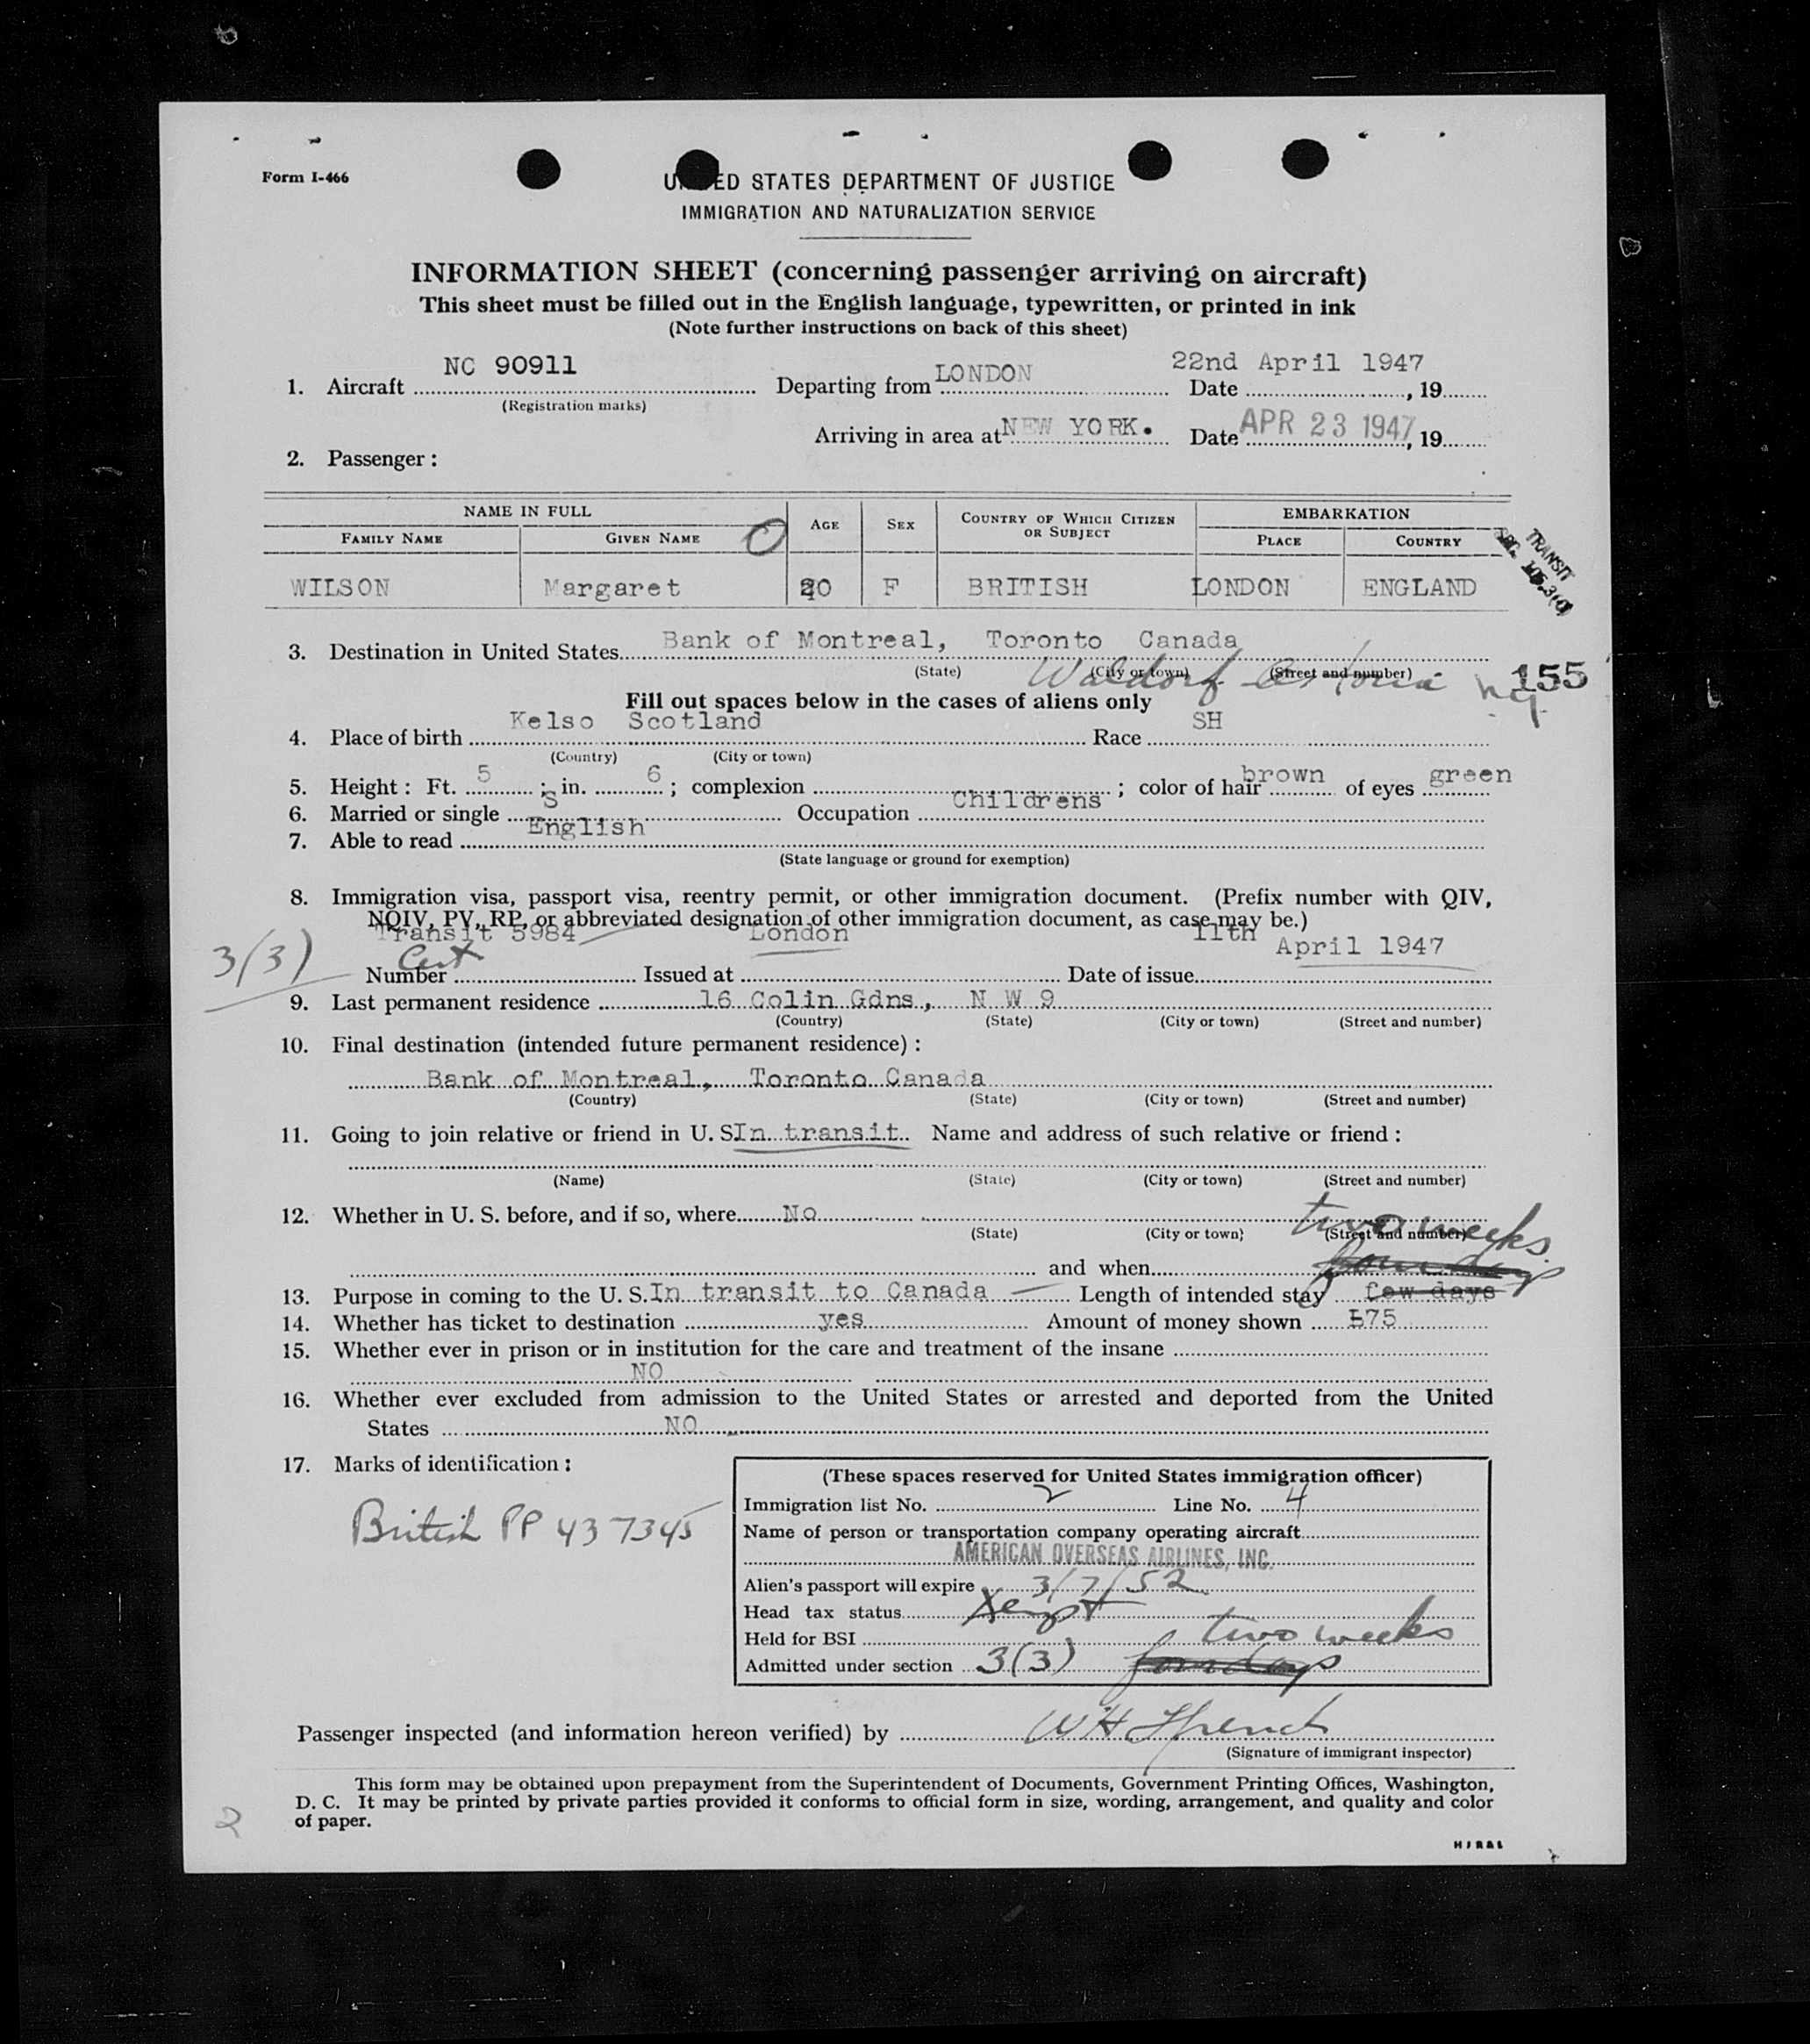 Form I-466
UNITED STATES DEPARTMENT OF JUSTICE
IMMIGRATION AND NATURALIZATION SERVICE
INFORMATION SHEET (concerning passenger arriving on aircraft)
This sheet must be filled out in the English language, typewritten, or printed in ink
(Note further instructions on back of this sheet)
1. Aircraft NC 90911 Departing from LONDON Date 22nd April 1947, 19
(Registration marks)
Arriving in area at NEW YORK. Date APR 23 1947, 19
2. Passenger :
NAME IN FULL AGE SEX COUNTRY OF WHICH CITIZEN OR SUBJECT EMBARKATION
FAMILY NAME GIVEN NAME PLACE COUNTRY
WILSON Margaret F BRITISH LONDON ENGLAND
TRANSIT
3. Destination in United States Bank of Montreal, Toronto Canada
(State) (City or town) (Street and number)
Waldorf Astoria NY
155
Fill out spaces below in the cases of aliens only
4. Place of birth Kelso Scotland Race SH
(Country) (City or town)
5. Height : Ft. 5 ; in. 6 ; complexion ; color of hair brown of eyes green
6. Married or single S Occupation Childrens
7. Able to read English
(State language or ground for exemption)
8. Immigration visa, passport visa, reentry permit, or other immigration document. (Prefix number with QIV,
NQIV, PV, RP, or abbreviated designation of other immigration document, as case may be.)
Transit 5984 London 11th April 1947
3(3)
Cert
Number Issued at Date of issue
9. Last permanent residence 16 Colin Gdns, N W 9
(Country) (State) (City or town) (Street and number)
10. Final destination (intended future permanent residence) :
Bank of Montreal, Toronto Canada
(Country) (State) (City or town) (Street and number)
11. Going to join relative or friend in U. S In transit. Name and address of such relative or friend :
(Name) (State) (City or town) (Street and number)
12. Whether in U. S. before, and if so, where No
(State) (City or town) (Street and number)
two weeks
and when
13. Purpose in coming to the U. S. In transit to Canada Length of intended stay few days
14. Whether has ticket to destination yes Amount of money shown £75
15. Whether ever in prison or in institution for the care and treatment of the insane
NO
16. Whether ever excluded from admission to the United States or arrested and deported from the United
States NO
17. Marks of identification :
British PP 437345
(These spaces reserved for United States immigration officer)
Immigration list No. 2 Line No. 4
Name of person or transportation company operating aircraft
AMERICAN OVERSEAS AIRLINES, INC.
Alien's passport will expire 3/7/52
Head tax status Xempt
Held for BSI two weeks
Admitted under section 3(3) four days
Passenger inspected (and information hereon verified) by W H
(Signature of immigrant inspector)
This form may be obtained upon prepayment from the Superintendent of Documents, Government Printing Offices, Washington,
D. C. It may be printed by private parties provided it conforms to official form in size, wording, arrangement, and quality and color
of paper.
2